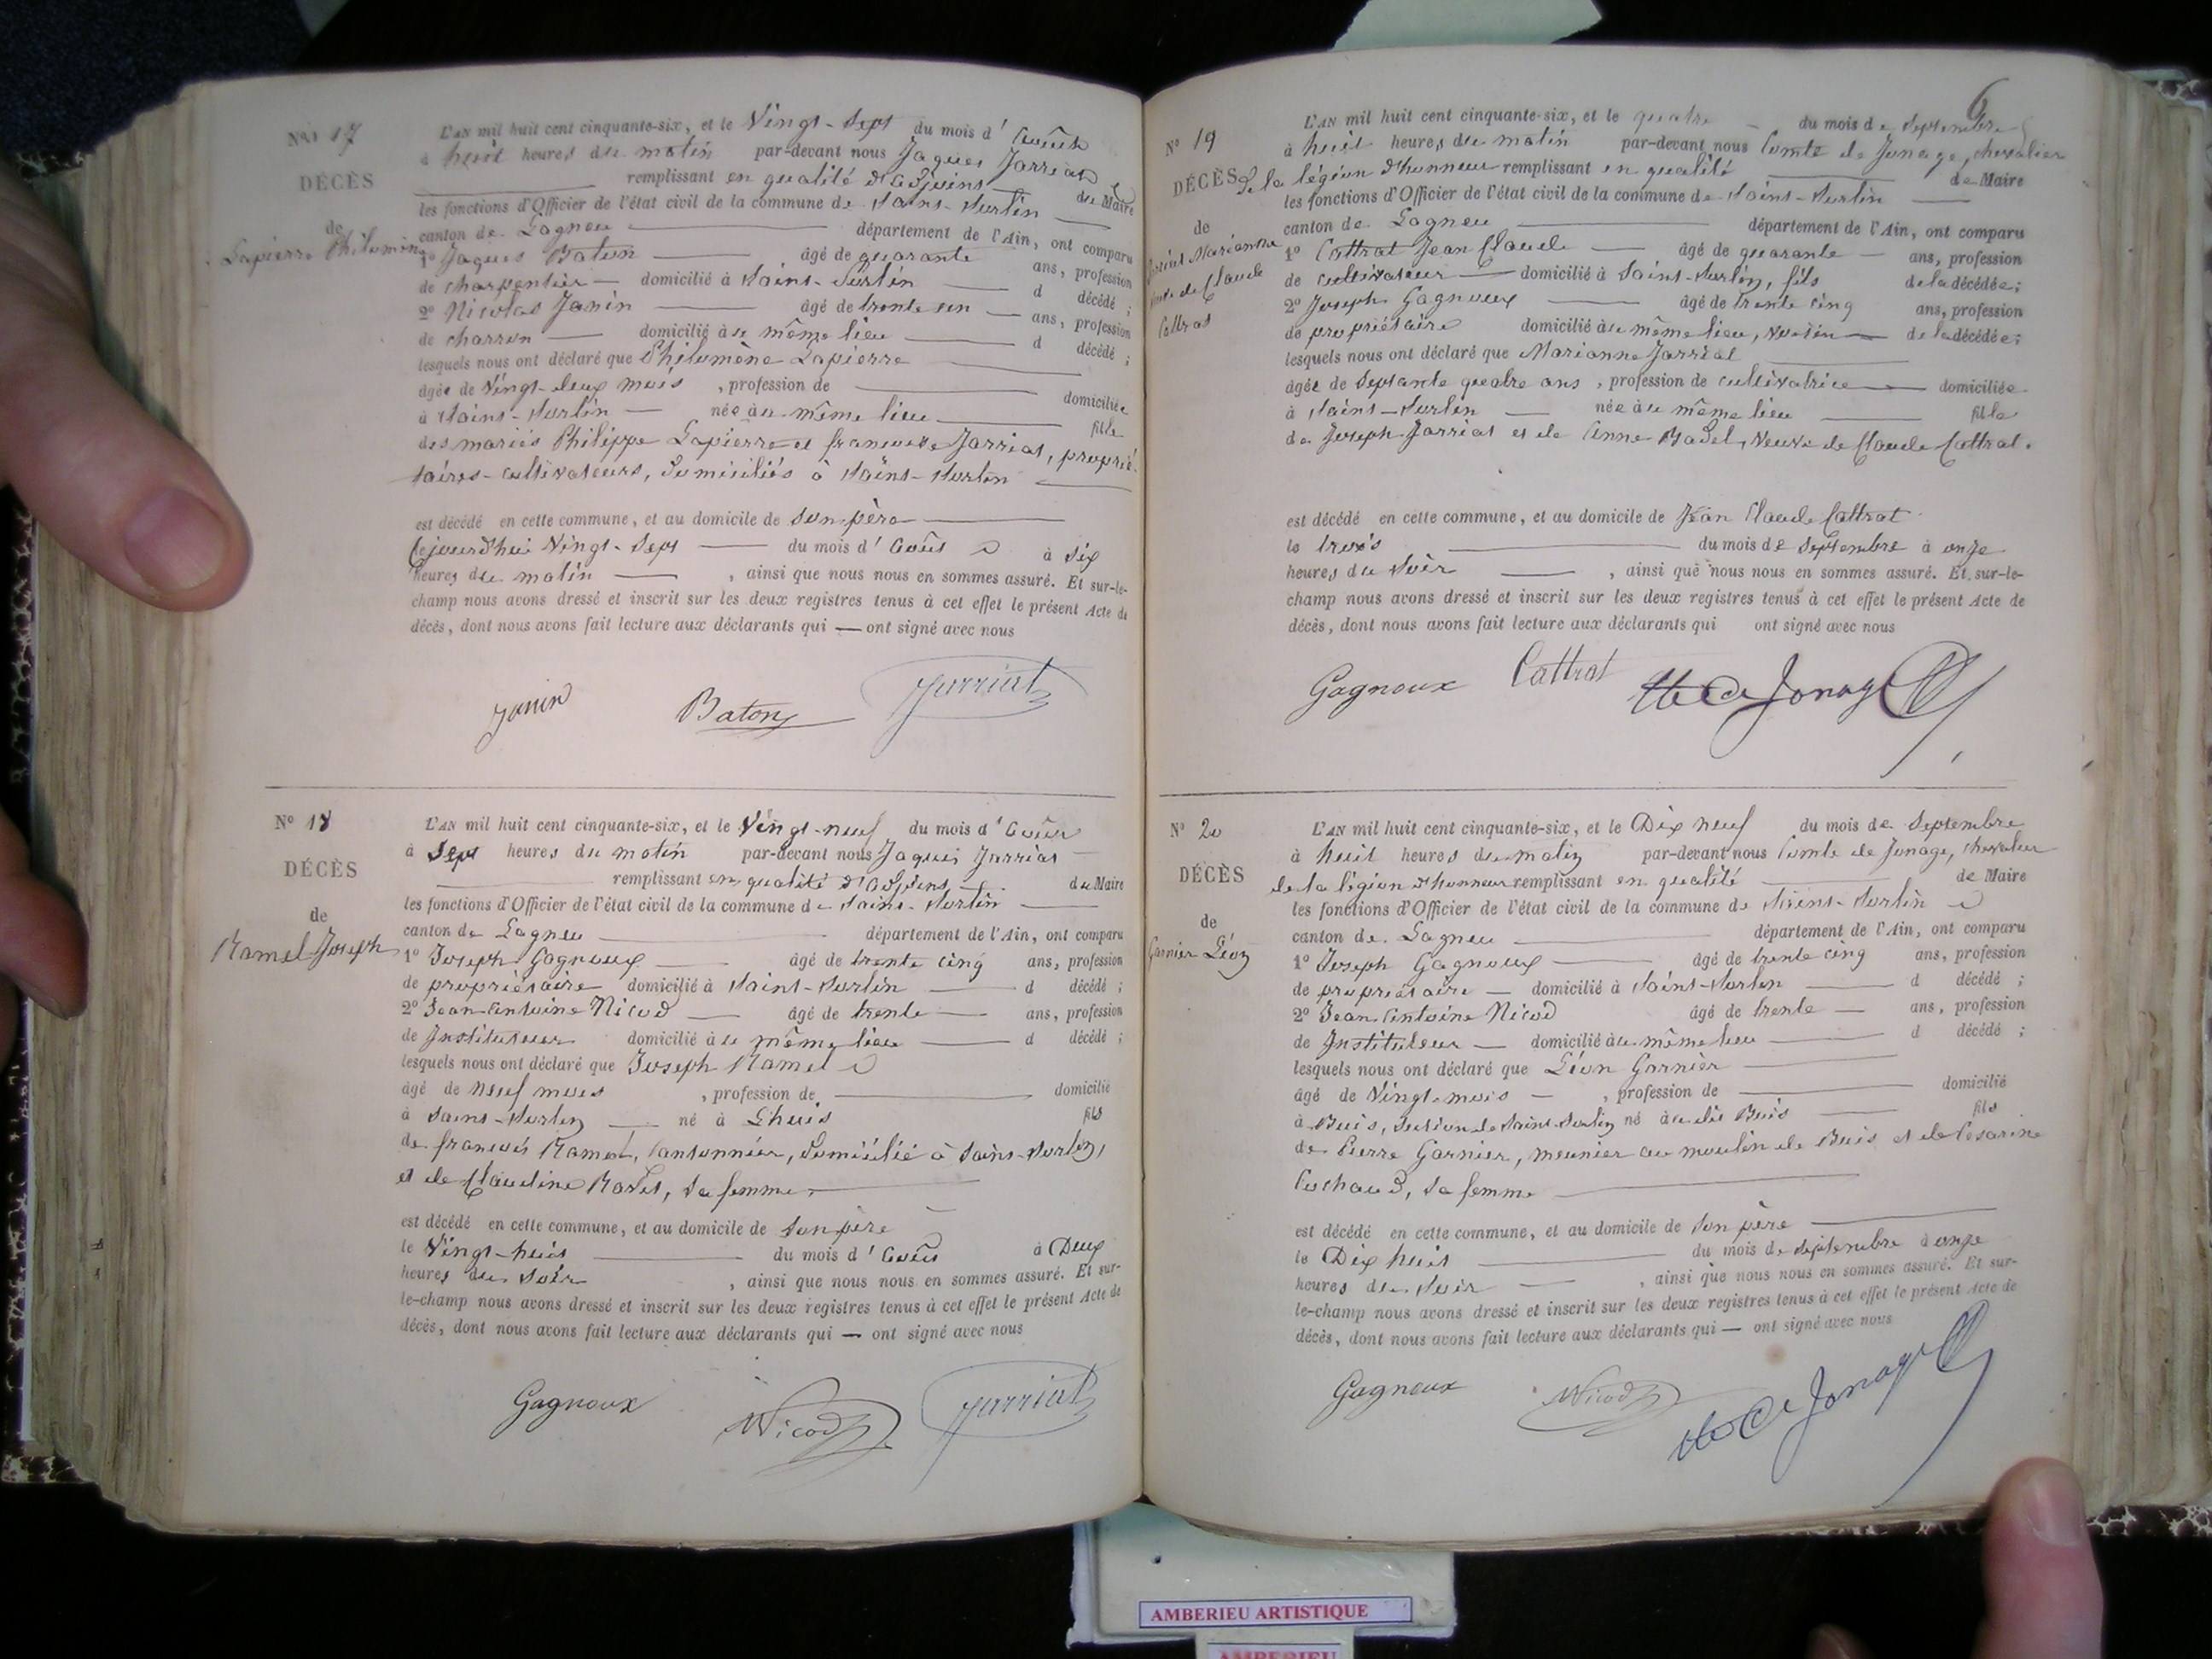 No 17
DÉCÈS
de
Lapierre Philomène
L'AN mil huit cent cinquante-six, et le Vingt-Sept du mois d'Août
à huit heures du matin par-devant nous Jaques Jarriat
remplissant en qualité d'adjoint du Maire
les fonctions d'Officier de l'état civil de la commune de Saint-Surlin
canton de Lagneu département de l'Ain, ont comparu
1° Jaques Baton âgé de quarante ans, profession
de charpentier domicilié à Saint-Surlin d décédé ;
2° Nicolas Janin âgé de trente un ans, profession
de charron domicilié au même lieu d décédé ;
lesquels nous ont déclaré que Philomène Lapierre
âgée de Vingt-deux mois , profession de domiciliée
à Saint-Surlin née au même lieu fille
des mariés Philippe Lapierre et françoise Jarriat, proprié-
taires-cultivateurs, domiciliés à Saint-Surlin
est décédé en cette commune, et au domicile de son père
Cejourd'hui Vingt-Sept du mois d'Août à six
heures du matin , ainsi que nous nous en sommes assuré. Et sur-le-
champ nous avons dressé et inscrit sur les deux registres tenus à cet effet le présent Acte de
décès, dont nous avons fait lecture aux déclarants qui — ont signé avec nous
Janin Baton Jarriat
No 18
DÉCÈS
de
Ramel Joseph
L'AN mil huit cent cinquante-six, et le Vingt-neuf du mois d'Août
à Sept heures du matin par-devant nous Jaques Jarriat
remplissant en qualité d'adjoint du Maire
les fonctions d'Officier de l'état civil de la commune de Saint-Surlin
canton de Lagneu département de l'Ain, ont comparu
1° Joseph Gagnoux âgé de trente cinq ans, profession
de propriétaire domicilié à Saint-Surlin d décédé ;
2° Jean Antoine Nicod âgé de trente ans, profession
de Instituteur domicilié au même lieu d décédé ;
lesquels nous ont déclaré que Joseph Ramel
âgé de neuf mois , profession de domicilié
à Saint-Surlin né à Lhuis fils
de françois Ramel, Cantonnier, domicilié à Saint-Surlin,
et de Claudine , sa femme
est décédé en cette commune, et au domicile de son père
le Vingt-huit du mois d'Août à Deux
heures du soir , ainsi que nous nous en sommes assuré. Et sur-
le-champ nous avons dressé et inscrit sur les deux registres tenus à cet effet le présent Acte de
décès, dont nous avons fait lecture aux déclarants qui — ont signé avec nous
Gagnoux Nicod Jarriat
6
No 19
DÉCÈS
de
Jarriat Marianne
Veuve de Claude
Cottrat
L'AN mil huit cent cinquante-six, et le quatre du mois de Septembre
à huit heures du matin par-devant nous Comte de Jonage, chevalier
de la légion d'honneur remplissant en qualité de Maire
les fonctions d'Officier de l'état civil de la commune de Saint-Surlin
canton de Lagneu département de l'Ain, ont comparu
1° Cottrat Jean Claude âgé de quarante ans, profession
de cultivateur domicilié à Saint-Surlin, fils de la décédée ;
2° Joseph Gagnoux âgé de trente cinq ans, profession
de propriétaire domicilié au même lieu, voisin de la décédée ;
lesquels nous ont déclaré que Marianne Jarriat
âgée de Septante quatre ans , profession de cultivatrice domiciliée
à Saint-Surlin née au même lieu fille
de Joseph Jarriat et de Anne , Veuve de Claude Cottrat.
est décédé en cette commune, et au domicile de Jean Claude Cottrat
le trois du mois de Septembre à onze
heures du soir , ainsi que nous nous en sommes assuré. Et sur-le-
champ nous avons dressé et inscrit sur les deux registres tenus à cet effet le présent Acte de
décès, dont nous avons fait lecture aux déclarants qui ont signé avec nous
Gagnoux Cattrat Cte de Jonage
No 20
DÉCÈS
de
Garnier Léon
L'AN mil huit cent cinquante-six, et le Dix neuf du mois de Septembre
à huit heures du matin par-devant nous Comte de Jonage, chevalier
de la légion d'honneur remplissant en qualité de Maire
les fonctions d'Officier de l'état civil de la commune de Saint-Surlin
canton de Lagneu département de l'Ain, ont comparu
1° Joseph Gagnoux âgé de trente cinq ans, profession
de propriétaire domicilié à Saint-Surlin d décédé ;
2° Jean Antoine Nicod âgé de trente ans, profession
de Instituteur domicilié au même lieu d décédé ;
lesquels nous ont déclaré que Léon Garnier
âgé de Vingt mois , profession de domicilié
à Buis, Section de Saint-Surlin né au dit Buis fils
de Pierre Garnier, meunier au moulin de Buis et de Césarine
Cochaud, sa femme
est décédé en cette commune, et au domicile de son père
le Dix huit du mois de septembre à onze
heures du soir , ainsi que nous nous en sommes assuré. Et sur-
le-champ nous avons dressé et inscrit sur les deux registres tenus à cet effet le présent Acte de
décès, dont nous avons fait lecture aux déclarants qui — ont signé avec nous
Gagnoux Nicod Cte de Jonage
AMBERIEU ARTISTIQUE
AMBERIEU